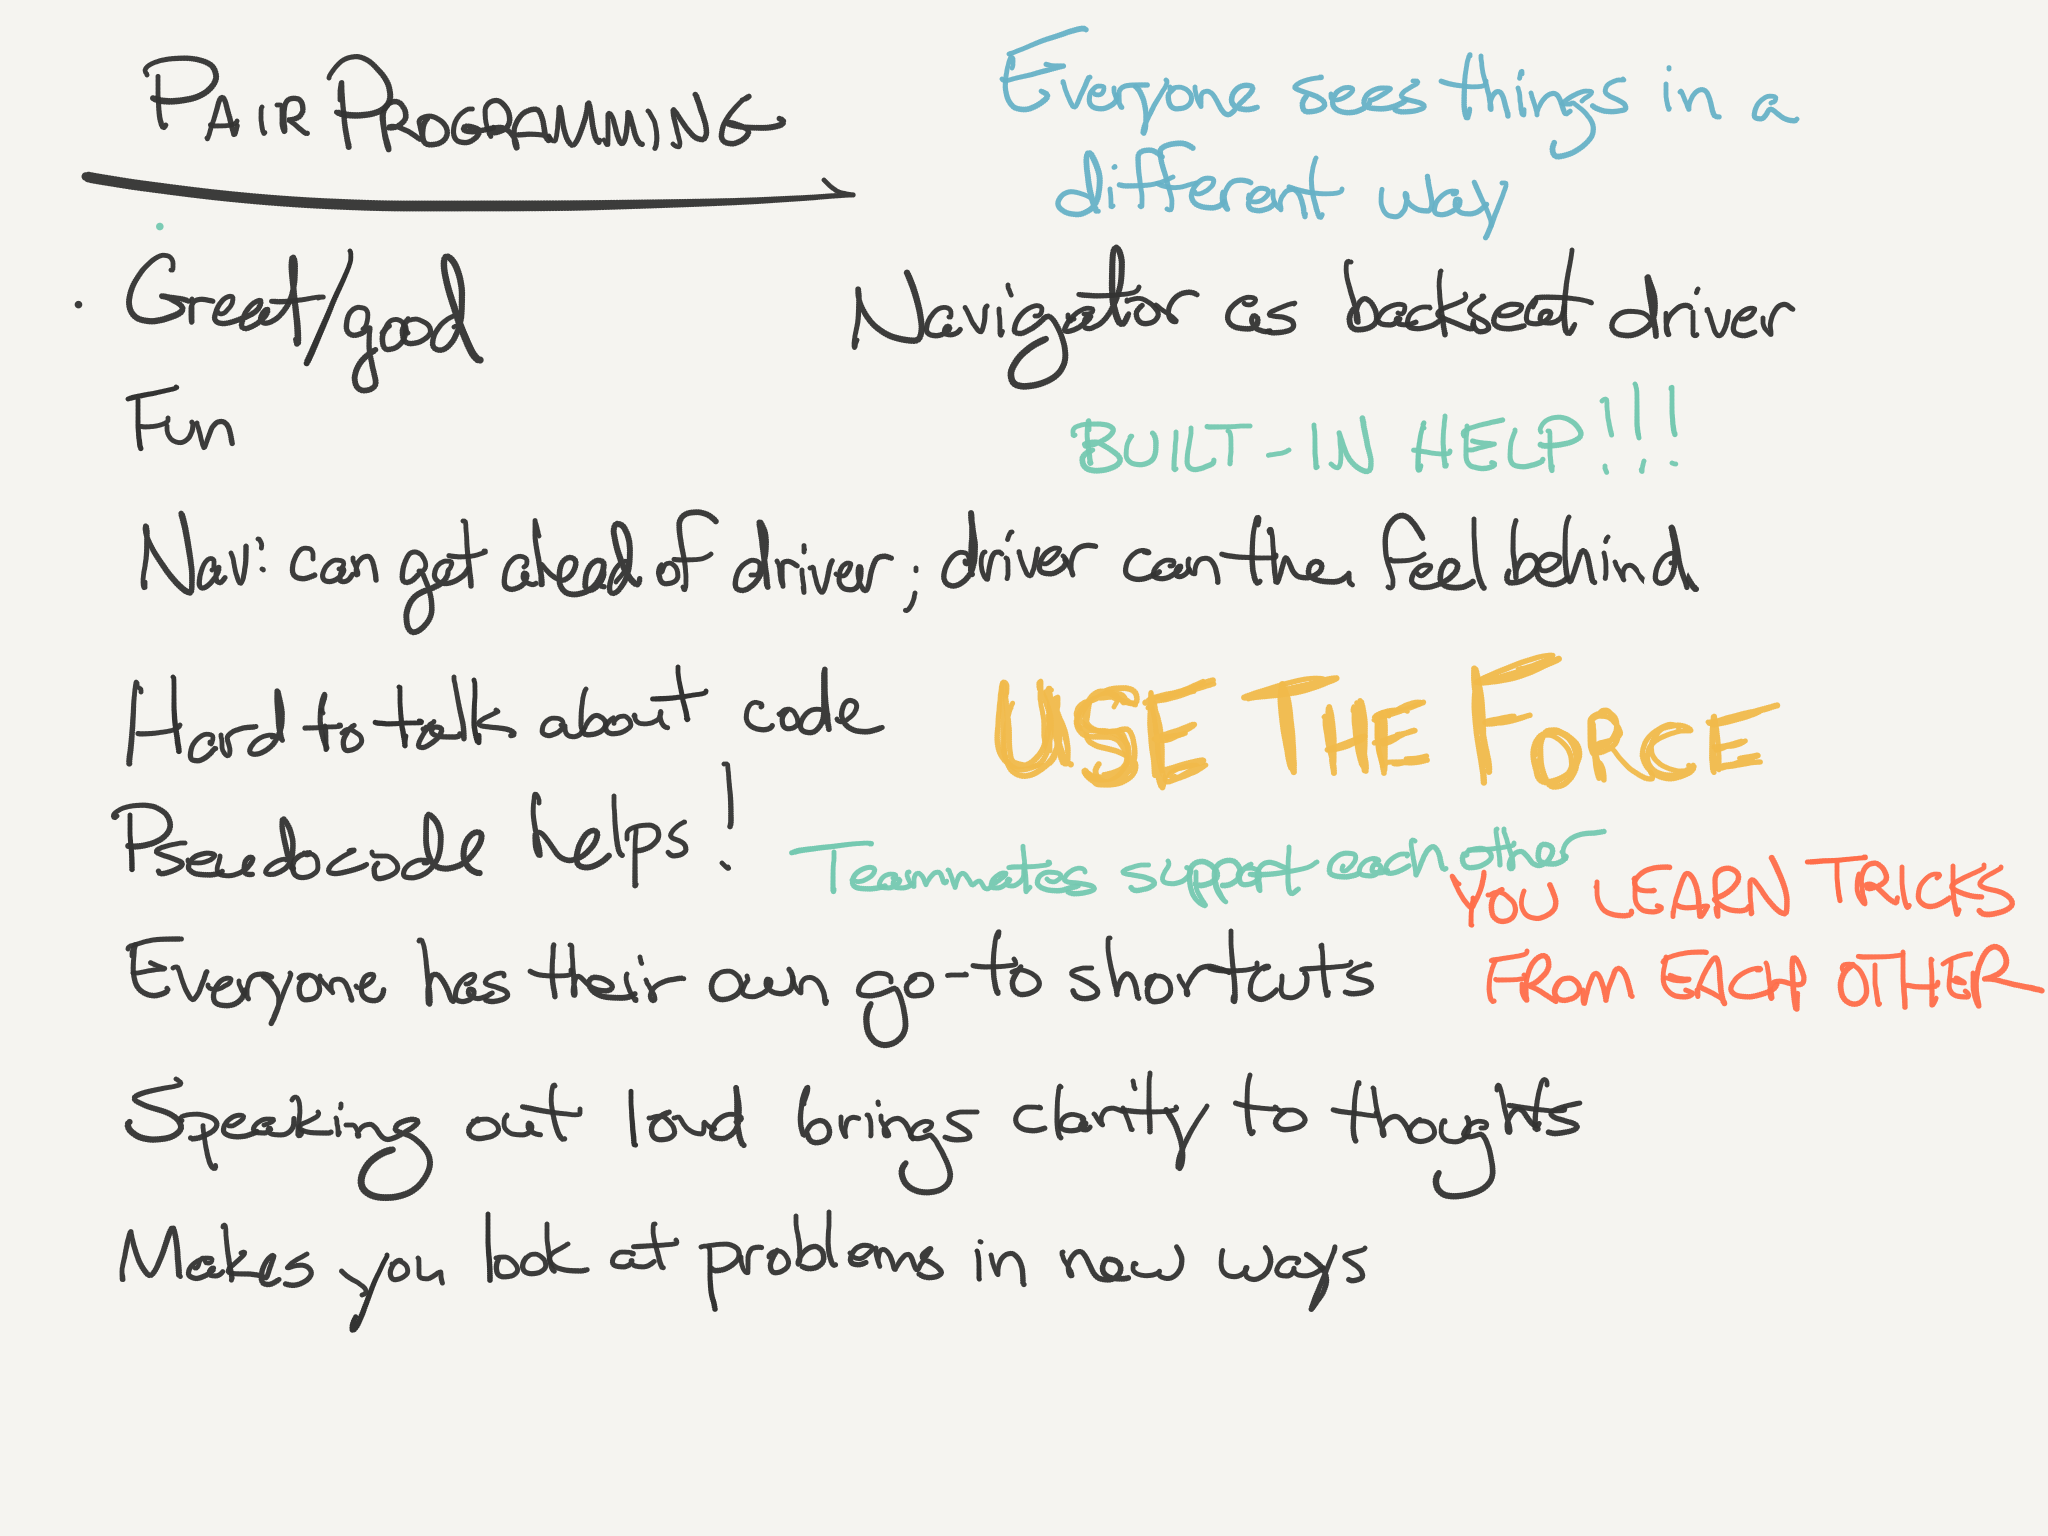 PAIR PROGRAMMING
Everyone sees things in a
different way
Great/good
Navigator as backseat driver
Fun
BUILT-IN HELP!!!
Nav: can get ahead of driver; driver can the feel behind
Hard to talk about code
USE THE FORCE
Pseudocode helps!
Teammates support each other
YOU LEARN TRICKS
FROM EACH OTHER
Everyone has their own go-to shortcuts
Speaking out loud brings clarity to thoughts
Makes you look at problems in new ways